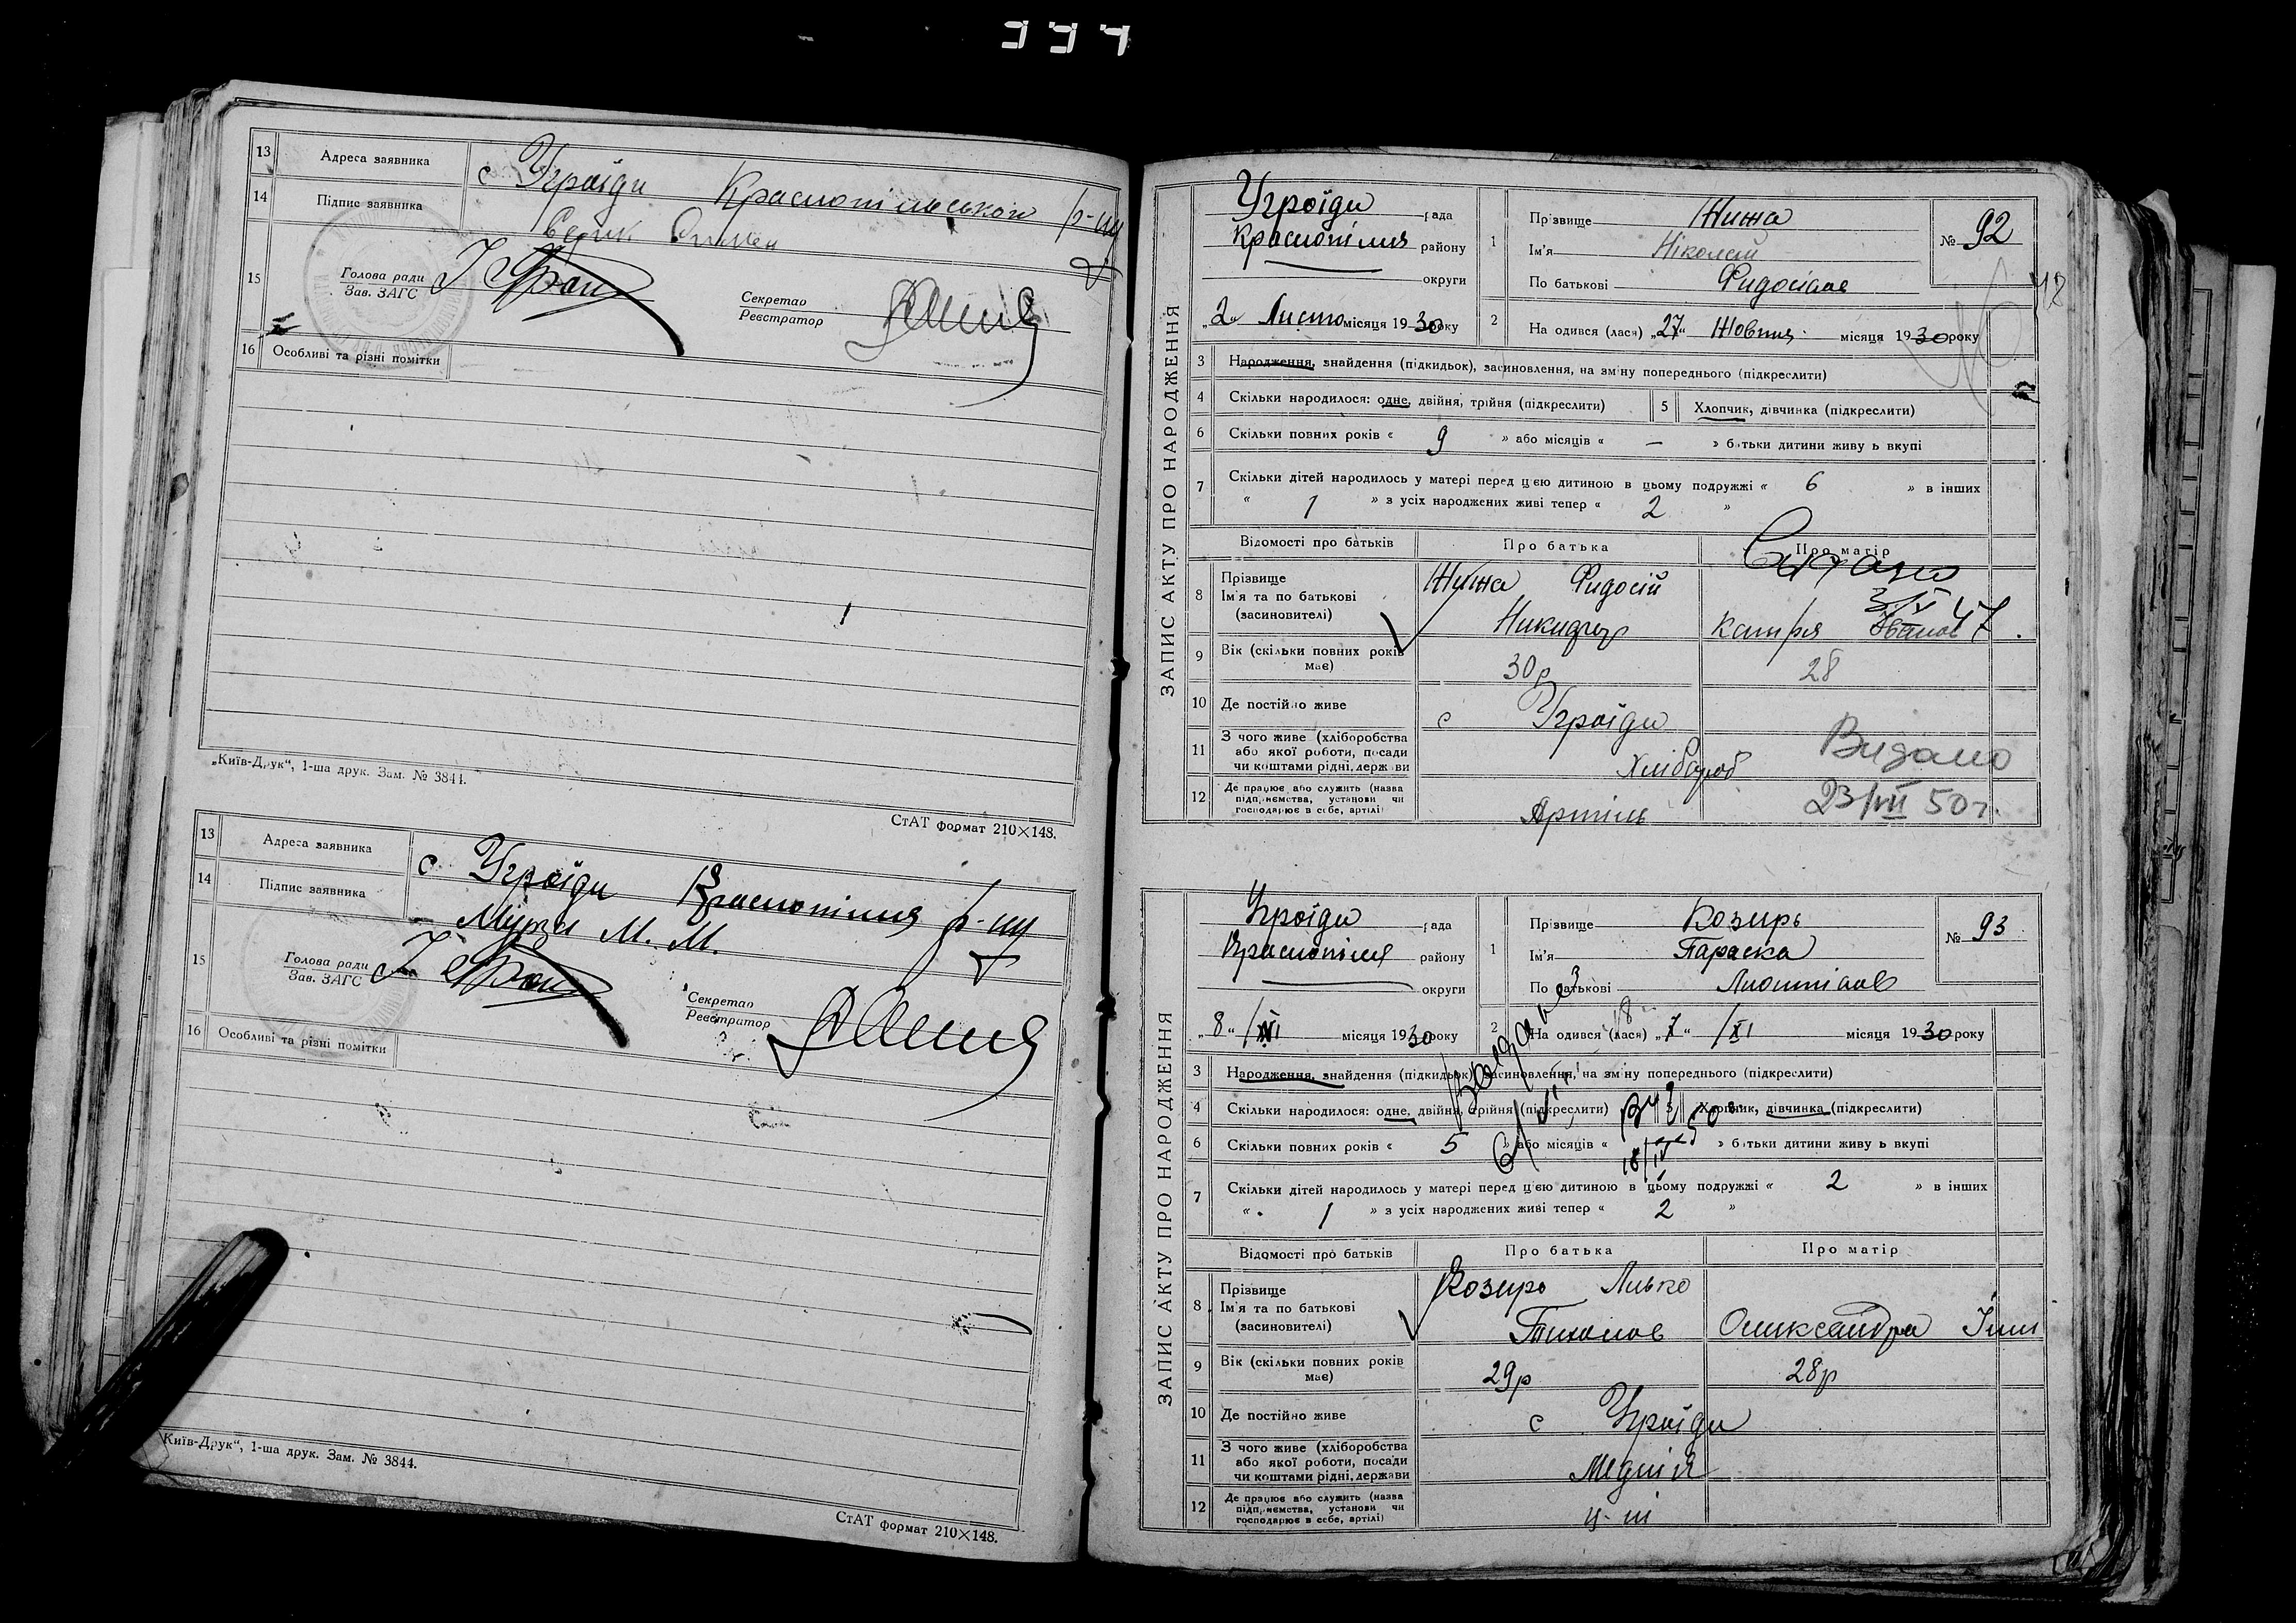 334
13 Адреса заявника с Угроїди Краснопільськой р-ну
14 Підпис заявника
15 Голова ради
Зав. ЗАГС
Секретар
Реєстратор
16 Особливі та різні помітки
„Київ-Друк“, 1-ша друк. Зам. № 3844.
СтАТ формат 210×148.
13 Адреса заявника с Угроїди Краснопілля р-ну
14 Підпис заявника Мурза М. М.
15 Голова ради
Зав. ЗАГС
Секретар
Реєстратор
16 Особливі та різні помітки
Київ-Друк“, 1-ша друк. Зам. № 3844.
СтАТ формат 210×148.
ЗАПИС АКТУ ПРО НАРОДЖЕННЯ
Угроїди рада
Краснопілля району
округи
„2“ Листо місяця 1930 року
1 Прізвище Жижа
Ім'я Ніколай
По батькові Федосіов
№ 92
2 На одився (лася) „27“ Жовтня місяця 1930 року
3 Народження, знайдення (підкидьок), засиновлення, на зміну попереднього (підкреслити)
4 Скільки народилося: одне, двійня, трійня (підкреслити) 5 Хлопчик, дівчинка (підкреслити)
6 Скільки повних років « 9 » або місяців « — » батьки дитини живу ь вкупі
7 Скільки дітей народилось у матері перед цією дитиною в цьому подружжі « 6 » в інших
« 1 » з усіх народжених живі тепер « 2 »
Відомості про батьків Про батька Про матір
8 Прізвище
Ім'я та по батькові
(засиновителі)
Жижа Федосій
Никифор
Катря Іванов
3/V 47
9 Вік (скільки повних років має) 30р 28
10 Де постійно живе с Угроїди
11 З чого живе (хліборобства
або якої роботи, посади
чи коштами рідні, держави
Хлібороб
Видано
23/VII 50 г.
12 Де працює або служить (назва
підприємства, установи чи
господарює в себе, артілі)
Артіль
ЗАПИС АКТУ ПРО НАРОДЖЕННЯ
Угроїди рада
Краснопілля району
округи
„8“ /XI місяця 1930 року
1 Прізвище Козирь
Ім'я Параска
По батькові
№ 93
2 На одився (лася) „7“ /XI місяця 1930 року
3 Народження, знайдення (підкидьок), засиновлення, на зміну попереднього (підкреслити)
4 Скільки народилося: одне, двійня, трійня (підкреслити) 5 Хлопчик, дівчинка (підкреслити)
6 Скільки повних років « 5 » або місяців « » батьки дитини живу ь вкупі
7 Скільки дітей народилось у матері перед цією дитиною в цьому подружжі « 2 » в інших
« 1 » з усіх народжених живі тепер « 2 »
Відомості про батьків Про батька Про матір
8 Прізвище
Ім'я та по батькові
(засиновителі)
Козирь Левко
Тихонов
Олександра
9 Вік (скільки повних років має) 29р 28р
10 Де постійно живе с Угроїди
11 З чого живе (хліборобства
або якої роботи, посади
чи коштами рідні, держави
12 Де працює або служить (назва
підприємства, установи чи
господарює в себе, артілі)